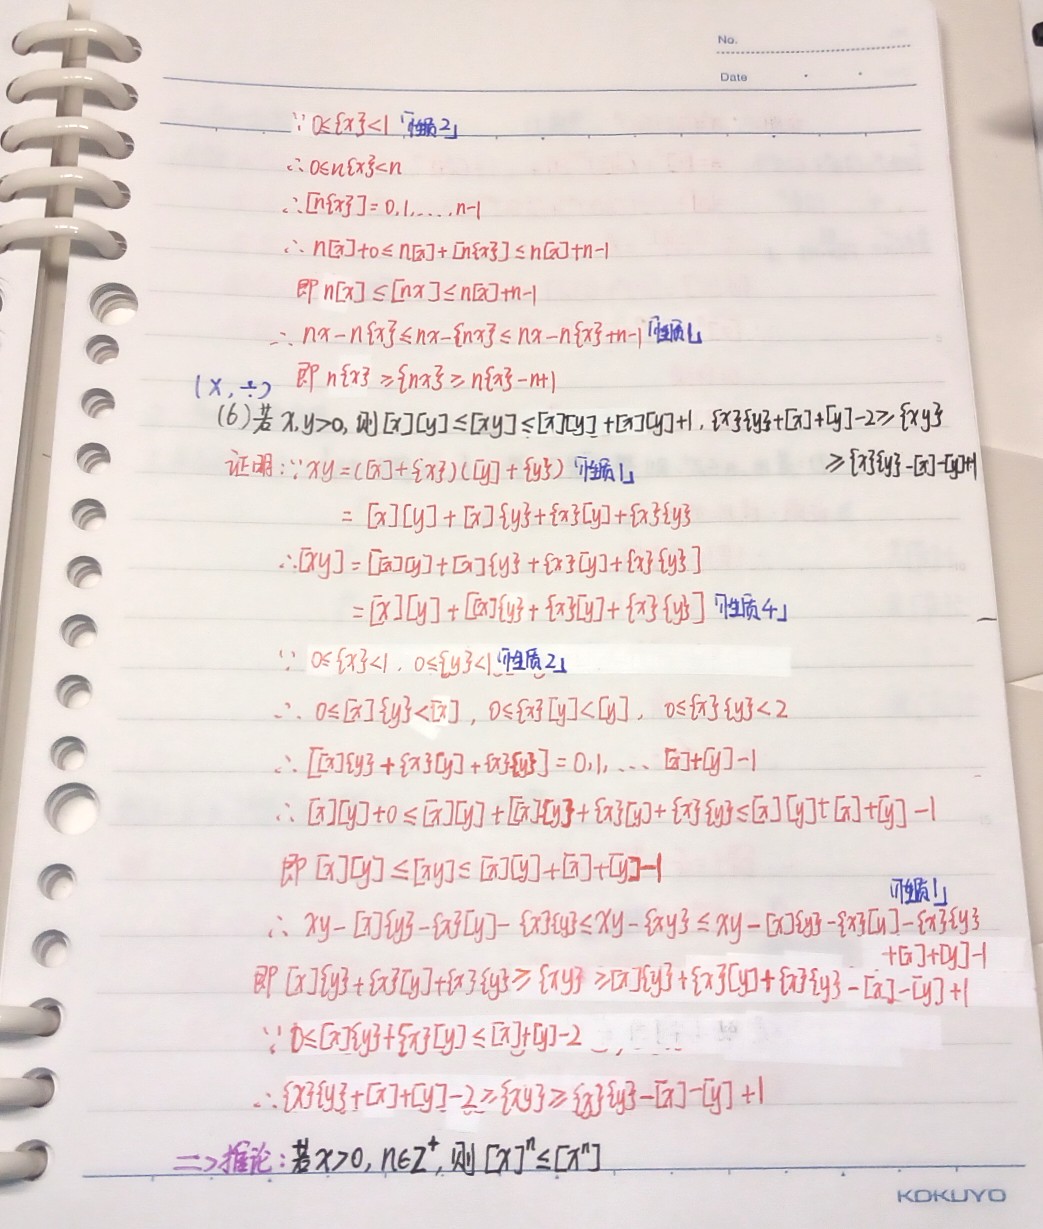 No.
Date
∵ 0≤{x}<1「性质2」
∴ 0≤n{x}<n
∴ [n{x}]=0,1,....,n-1
∴ n[x]+0≤n[x]+[n{x}]≤n[x]+n-1
即 n[x]≤[nx]≤n[x]+n-1
∴ nx-n{x}≤nx-{nx}≤nx-n{x}+n-1「性质1」
即 n{x}≥{nx}≥n{x}-n+1
(×,÷)
(6) 若x,y>0, 则[x][y]≤[xy]≤[x][y]+[x][y]+1, {x}{y}+[x]+[y]-2≥{xy}
≥{x}{y}-[x]-[y]+1
证明:∵xy=([x]+{x})([y]+{y})「性质1」
=[x][y]+[x]{y}+{x}[y]+{x}{y}
∴[xy]=[[x][y]+[x]{y}+{x}[y]+{x}{y}]
=[x][y]+[[x]{y}+{x}[y]+{x}{y}]「性质4」
∵ 0≤{x}<1, 0≤{y}<1「性质2」
∴ 0≤[x]{y}<[x], 0≤{x}[y]<[y], 0≤{x}{y}<2
∴ [[x]{y}+{x}[y]+{x}{y}]=0,1,... [x]+[y]-1
∴ [x][y]+0≤[x][y]+[x]{y}+{x}[y]+{x}{y}≤[x][y]+[x]+[y]-1
即 [x][y]≤[xy]≤[x][y]+[x]+[y]-1
「性质1」
∴ xy-[x]{y}-{x}[y]-{x}{y}≤xy-{xy}≤xy-[x]{y}-{x}[y]-{x}{y}
+[x]+[y]-1
即 [x]{y}+{x}[y]+{x}{y}≥{xy}≥[x]{y}+{x}[y]+{x}{y}-[x]-[y]+1
∵ 0≤[x]{y}+{x}[y]≤[x]+[y]-2
∴ {x}{y}+[x]+[y]-2≥{xy}≥{x}{y}-[x]-[y]+1
=>推论:若x>0, n∈Z⁺, 则[x]ⁿ≤[xⁿ]
KOKUYO